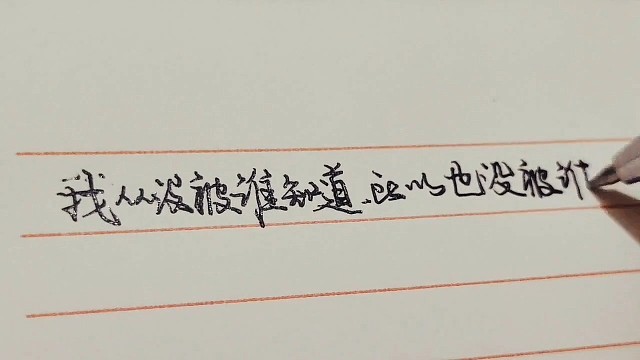 我从没被谁知道,所以也没被